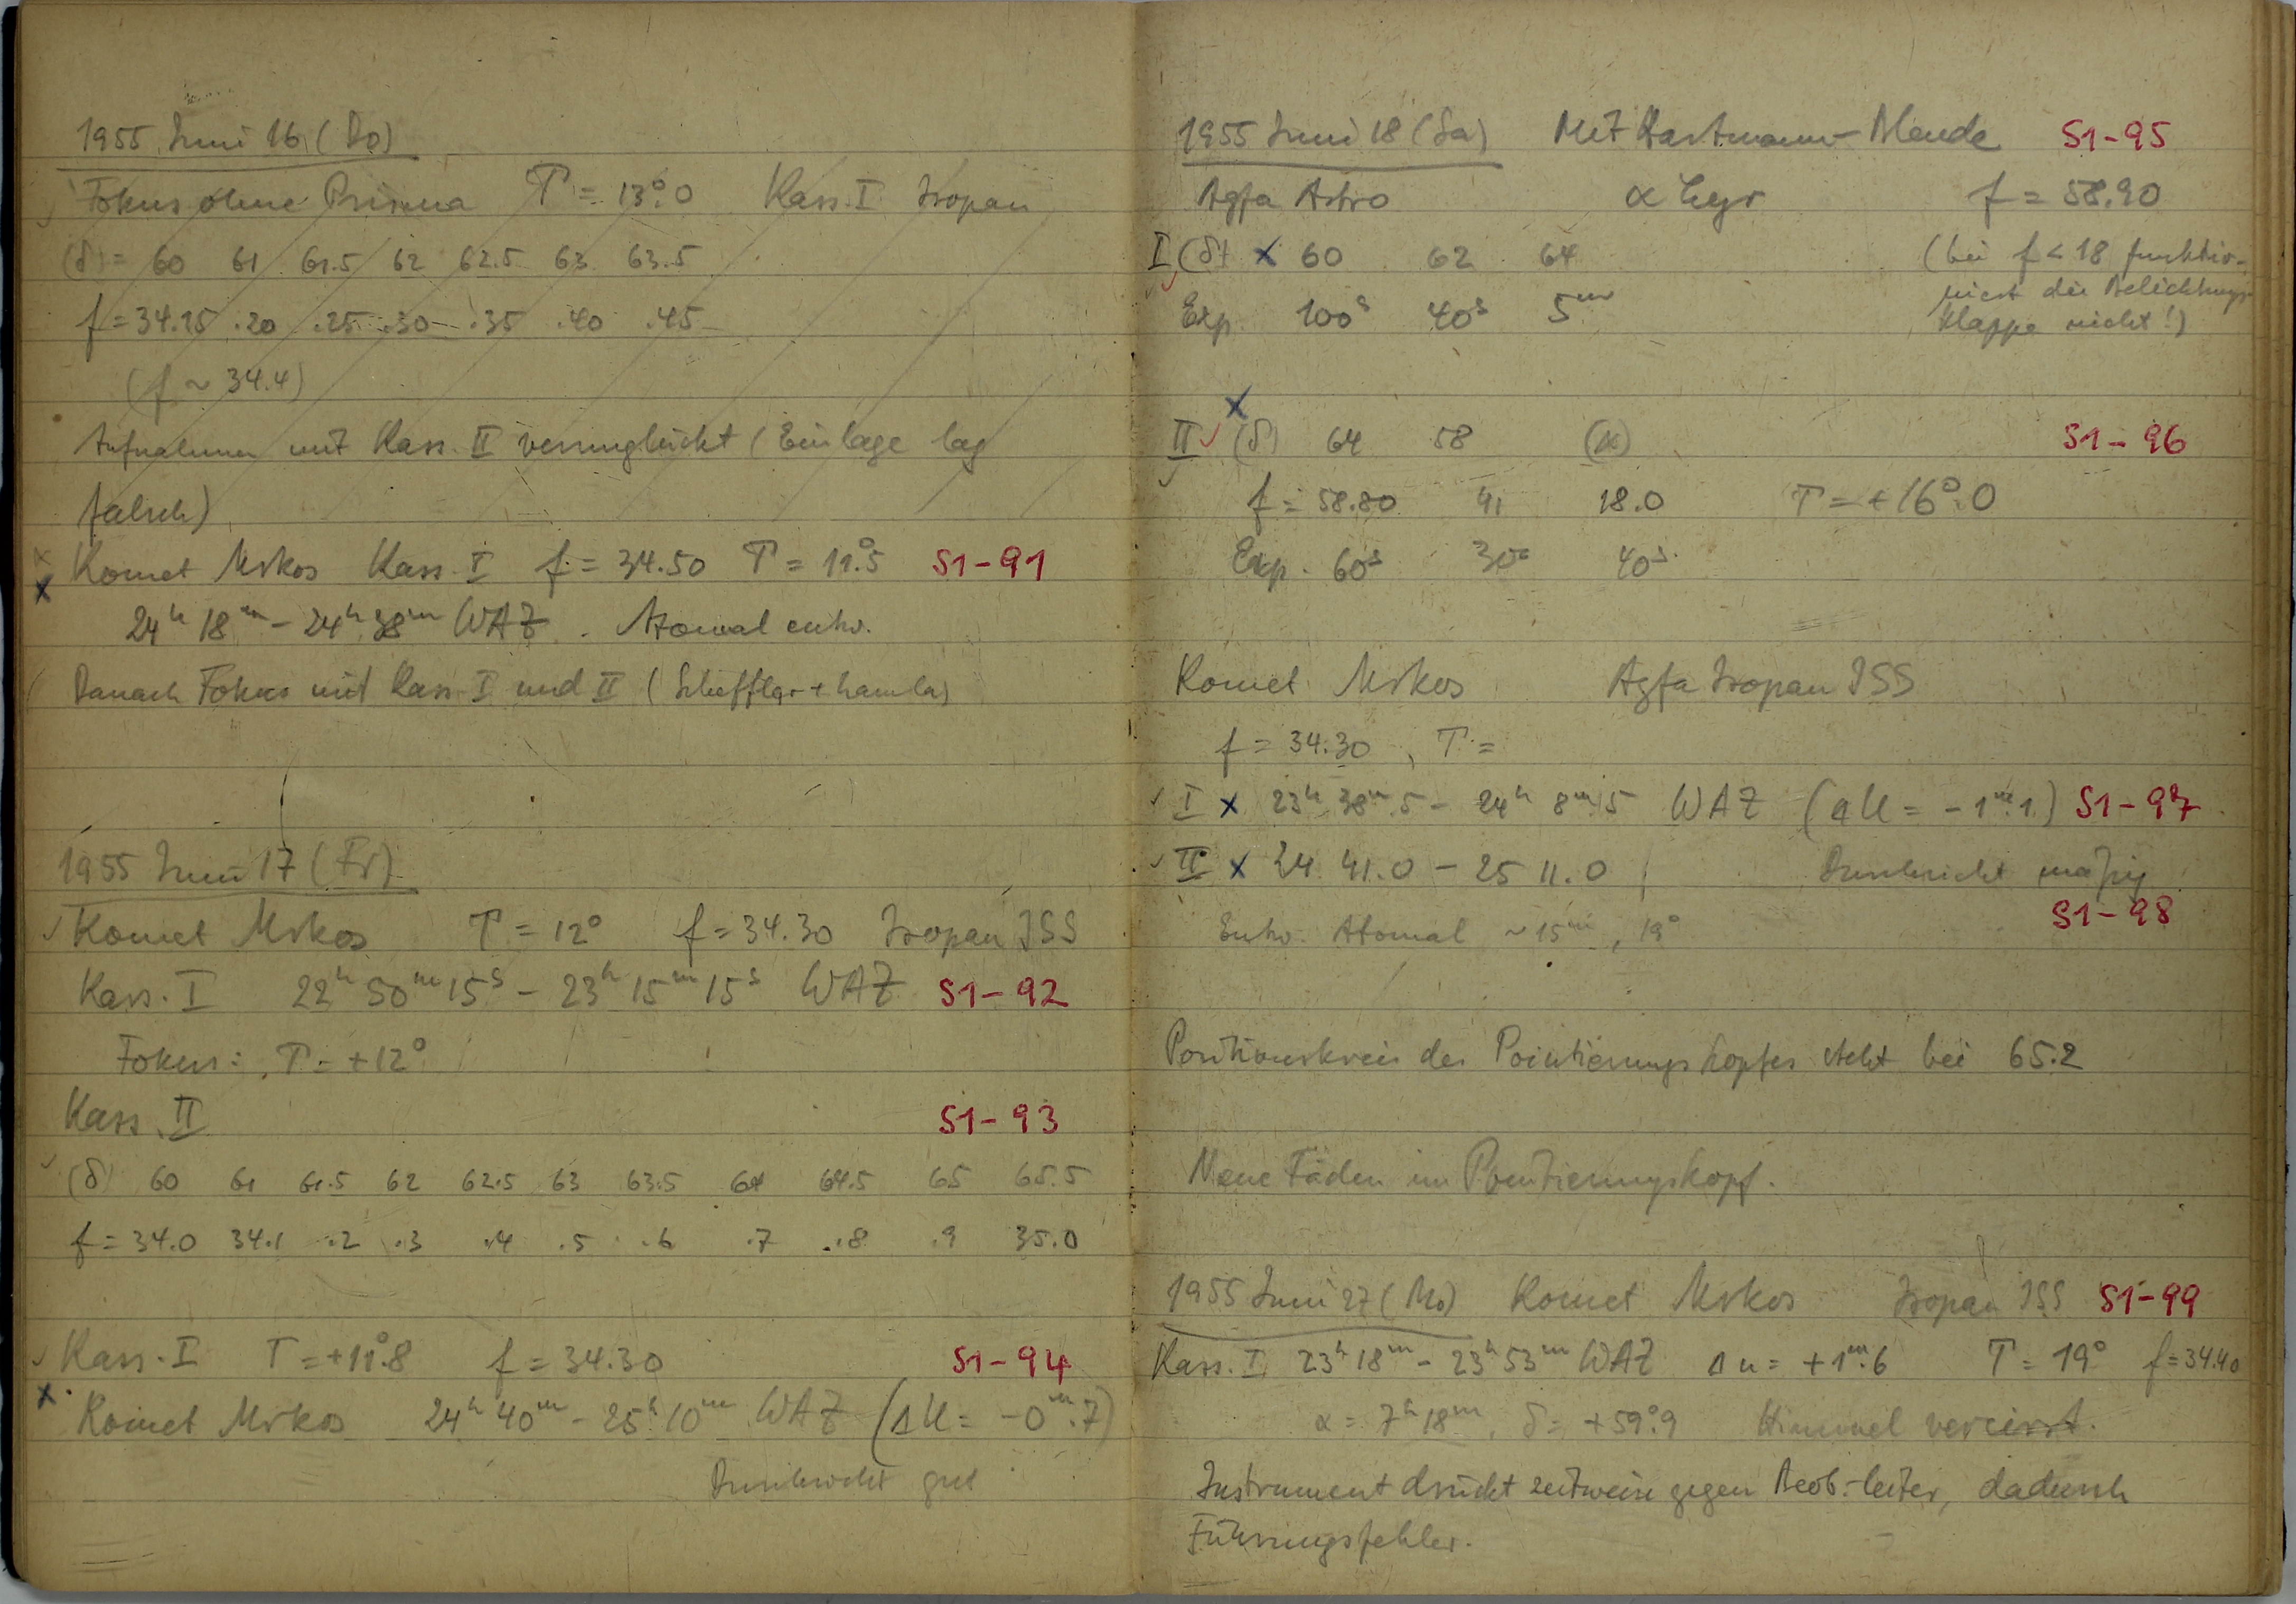 1955 Juni 16 (Do)
Fokus ohne Prisma T = 13°.0 Kass. I Isopan
(δ) = 60 61 61.5 62 62.5 63 63.5
f = 34.15 .20 .25 .30 .35 .40 .45
(f ~ 34.4)
Aufnahmen mit Kass. II verunglückt (Einlage lag
falsch)
x Komet Mrkos Kass. I f = 34.50 T = 11°.5 S1-91
24h 18m - 24h 38m WAZ. Atomal entw.
Danach Fokus mit Kass. I und II (Scheffler + Lamla)
1955 Juni 17 (Fr)
✓ Komet Mrkos T = 12° f = 34.30 Isopan ISS
Kass. I 22h 50m 15s - 23h 15m 15s WAZ S1-92
Fokus: T = +12°
Kass. II S1-93
(δ) 60 61 61.5 62 62.5 63 63.5 64 64.5 65 65.5
f = 34.0 34.1 .2 .3 .4 .5 .6 .7 .8 .9 35.0
✓ Kass. I T = +11°.8 f = 34.30 S1-94
x Komet Mrkos 24h 40m - 25h 10m WAZ (ΔU = -0m.7)
Durchsicht gut
1955 Juni 18 (Sa) Mit Hartmann-Blende S1-95
Agfa Astro α Lyr f = 58.90
I (δ) x 60 62 64 (bei f < 18 funktio-
niert die Belichtungs-
Exp. 100s 40s 5m klappe nicht!)
x
II ✓ (δ) 64 58 S1-96
f = 58.80 41 18.0 T = +16°.0
Exp. 60s 30s 40s
Komet Mrkos Agfa Isopan ISS
f = 34.30, T =
✓ I x 23h 38m.5 - 24h 8m.5 WAZ (ΔU = -1m.1) S1-97
✓ II x 24 41.0 - 25 11.0 Durchsicht mäßig
S1-98
Entw. Atomal ~15m, 19°
Positionskreis des Pointierungskopfes steht bei 65.2
Neue Fäden im Pointierungskopf.
1955 Juni 27 (Mo) Komet Mrkos Isopan ISS S1-99
Kass. I 23h 18m - 23h 53m WAZ Δu = +1m.6 T = 19° f = 34.40
α = 7h 18m, δ = +59°.9 Himmel vercirrt.
Instrument drückt zeitweise gegen Beob.-leiter, dadurch
Führungsfehler.